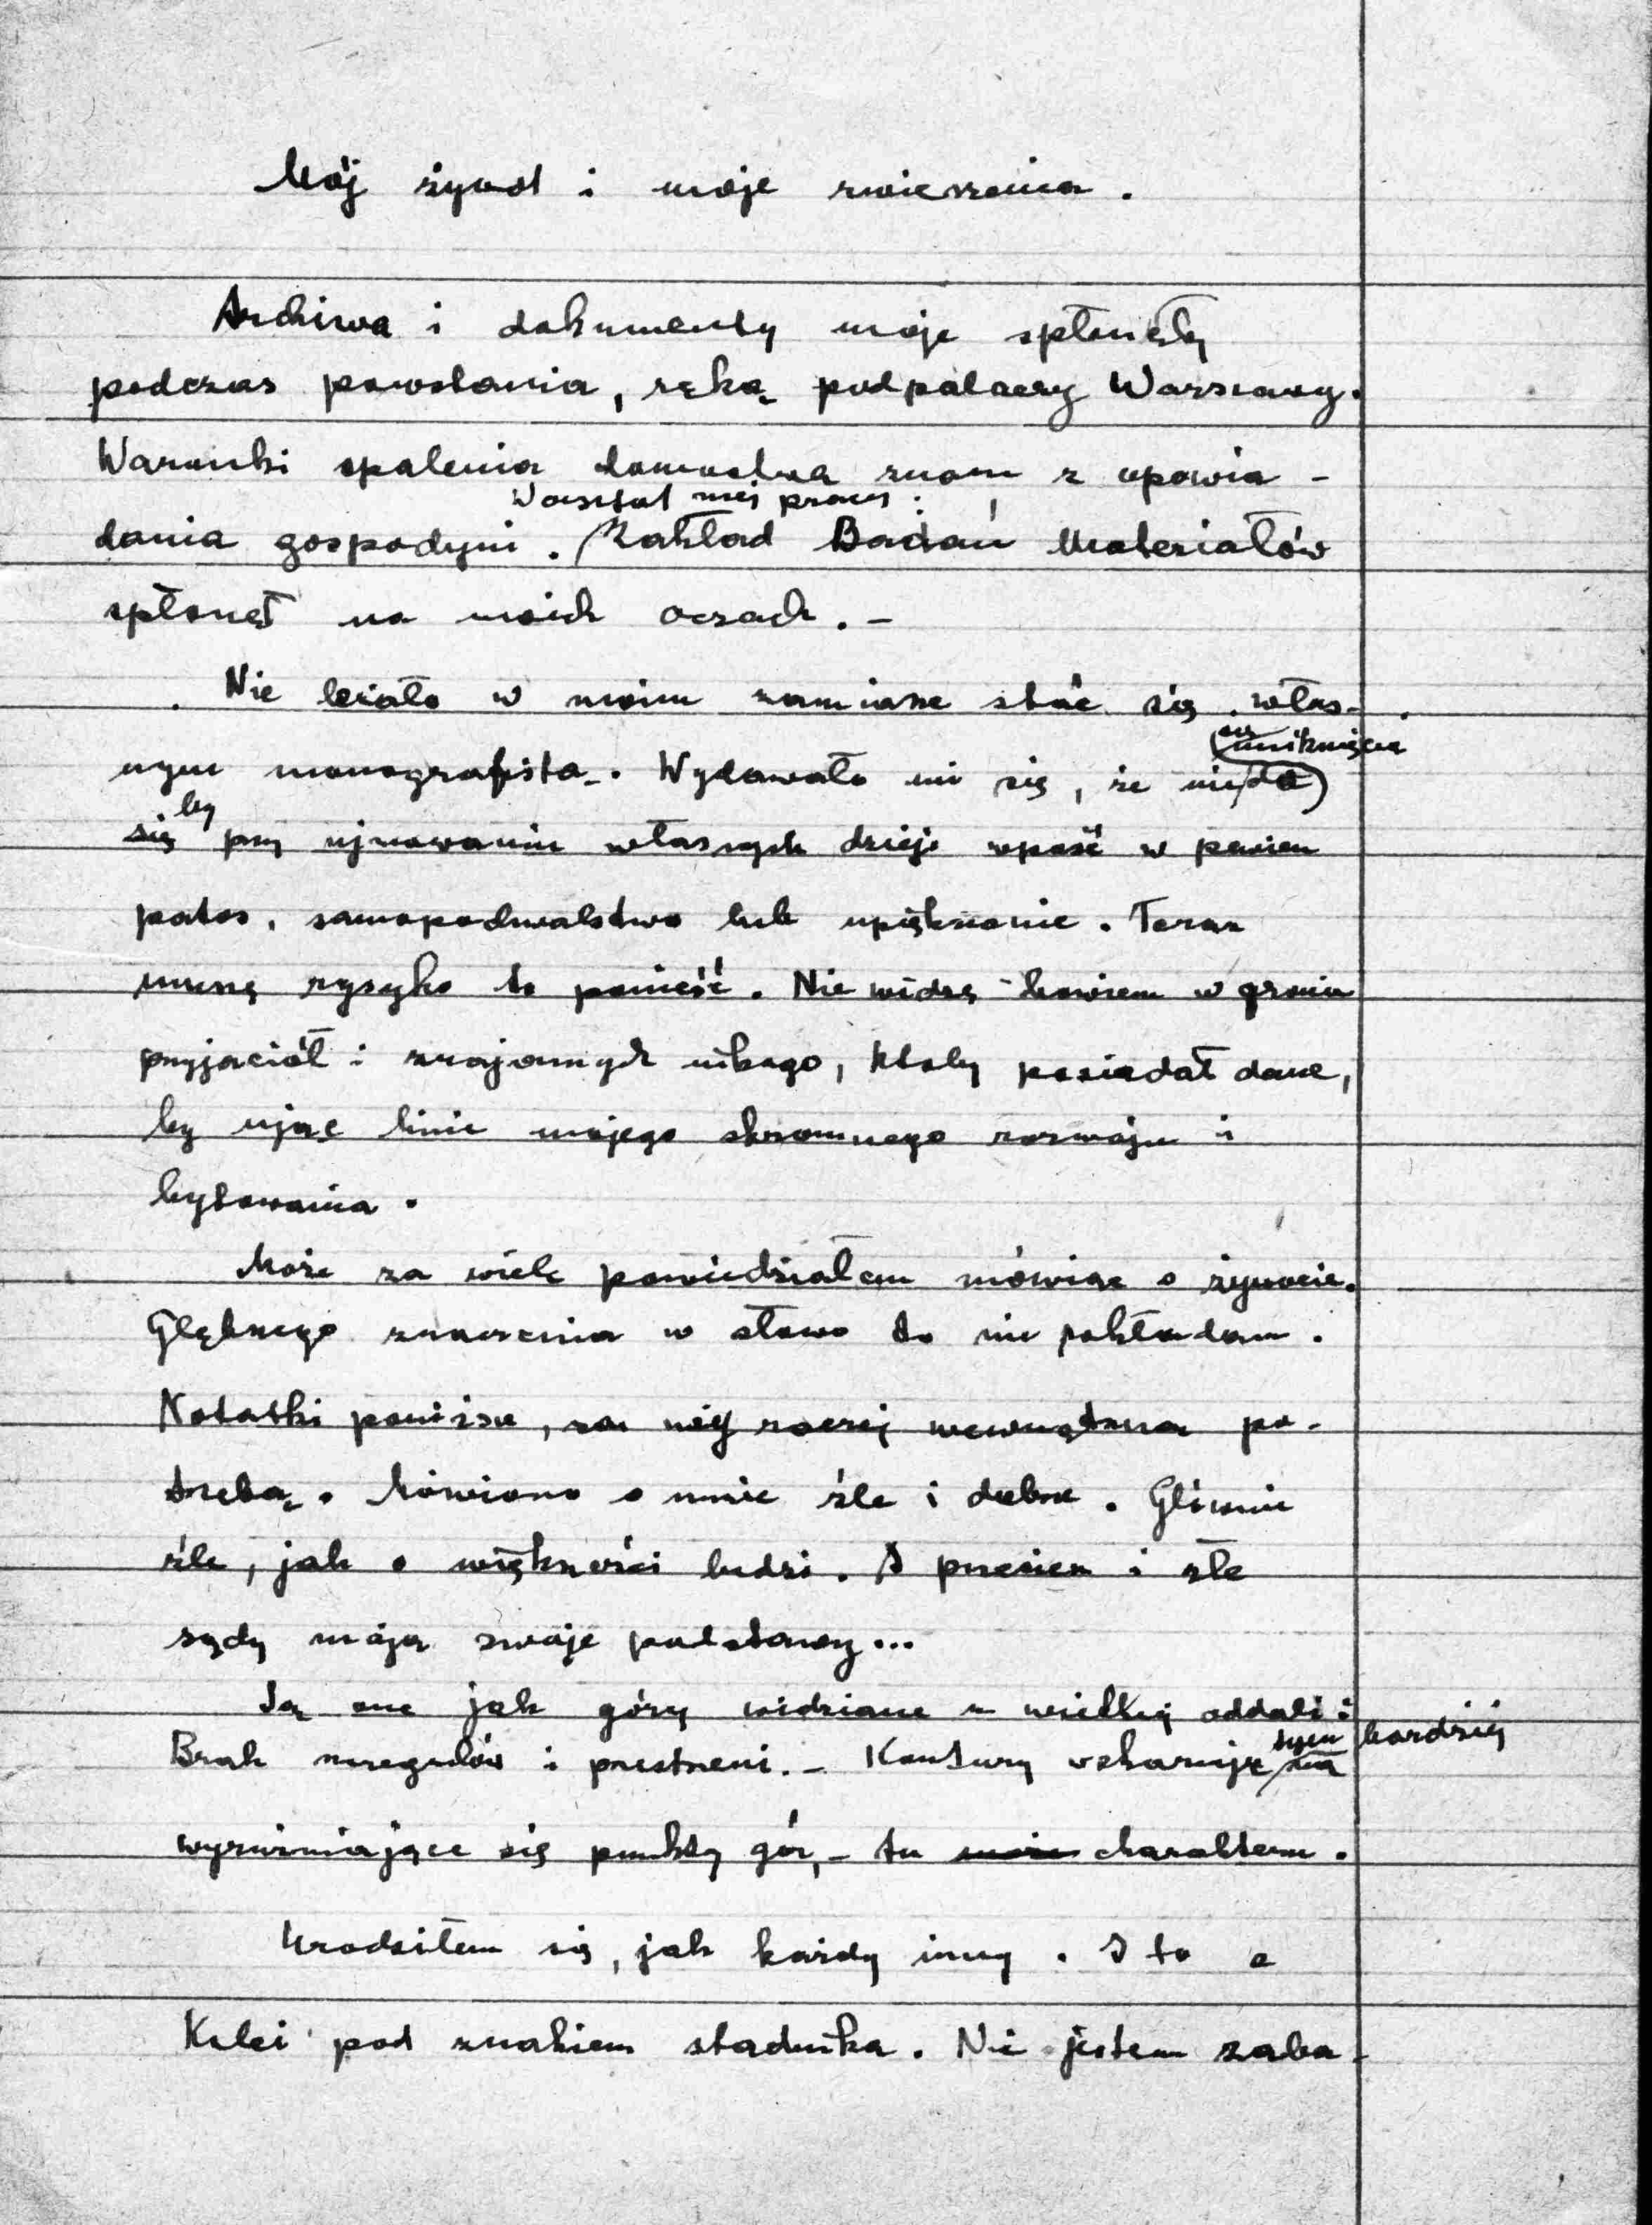 Mój żywot i moje zwierzenia.
Archiwa i dokumenty moje spłonęły
podczas powstania, ręką podpalaczy Warszawy.
Warunki spalenia domostwa znam z opowia-
Warsztat mej pracy:
dania gospodyni. Zakład Badań Materiałów
spłonął na moich oczach. –
Nie leżało w moim zamiarze stać się włas-
uniknięcia
nym monografistą. Wydawało mi się, że nie da
by
się przy ujmowaniu własnych dzieji wpaść w pewien
patos, samopochwalstwo lub upiększanie. Teraz
muszę ryzyko to ponieść. Nie widzę bowiem w gronie
przyjaciół i znajomych nikogo, ktoby posiadał dane,
by ująć linie mojego skromnego rozwoju i
bytowania.
Może za wiele powiedziałem mówiąc o żywocie.
Głębszego znaczenia w słowo to nie pokładam.
Notatki poniższe, są mą raczej wewnętrzną po-
trzebą. Mówiono o mnie źle i dobrze. Głównie
źle, jak o większości ludzi. A przecież i złe
sądy mają swoje podstawy...
Są one jak góry widziane z wielkiej oddali:
tym bardziej
Brak szczegółów i przestrzeni. – Kontury wskazują na
wyróżniające się punkty gór, – tu charakteru.
Urodziłem się, jak każdy inny. I to z
Kolei pod znakiem stadnika. Nie jestem zabo-